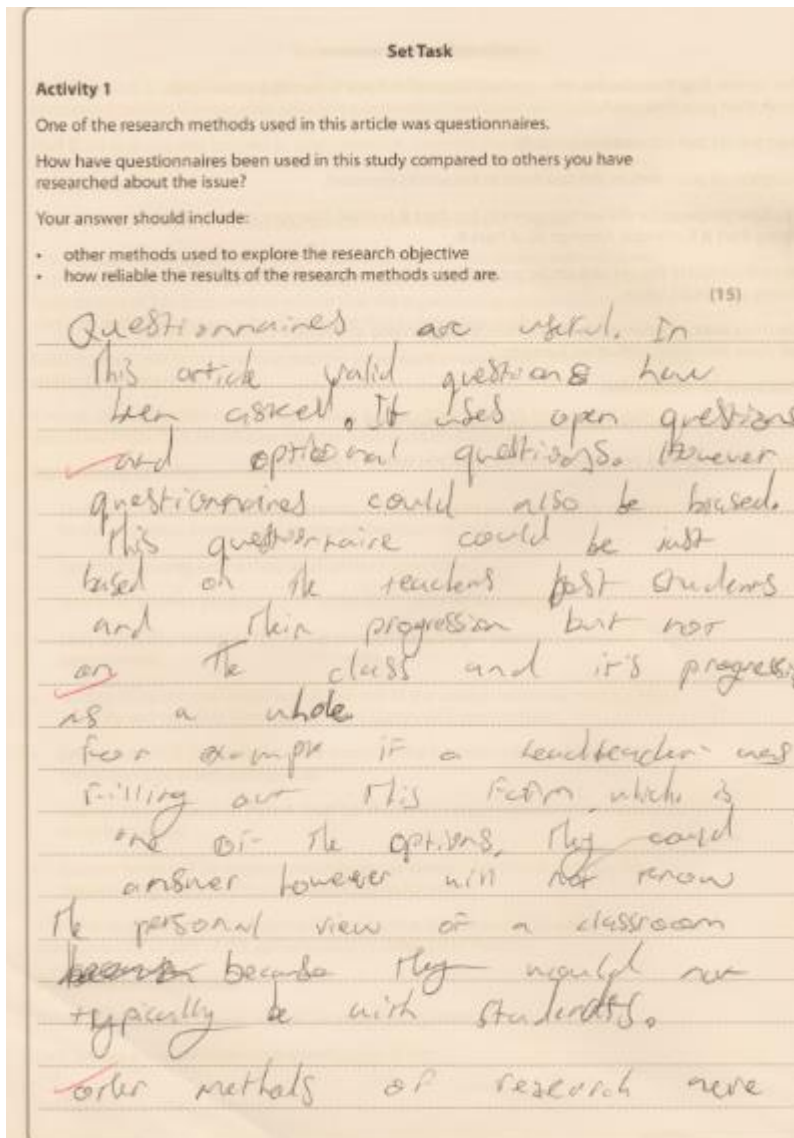 Set Task
Activity 1
One of the research methods used in this article was questionnaires.
How have questionnaires been used in this study compared to others you have
researched about the issue?
Your answer should include:
• other methods used to explore the research objective
• how reliable the results of the research methods used are.
(15)
Questionnaires are useful. In
this article valid questions have
been asked. It uses open questions
and optional questions. However
questionnaires could also be biased.
This questionnaire could be just
based on the teachers best students
and their progression but not
on the class and it's progressi
as a whole.
For example if a headteacher was
filling out this form, which is
one of the options, they could
answer however will not know
the personal view of a classroom
because they would not
typically be with students.
other methods of research were